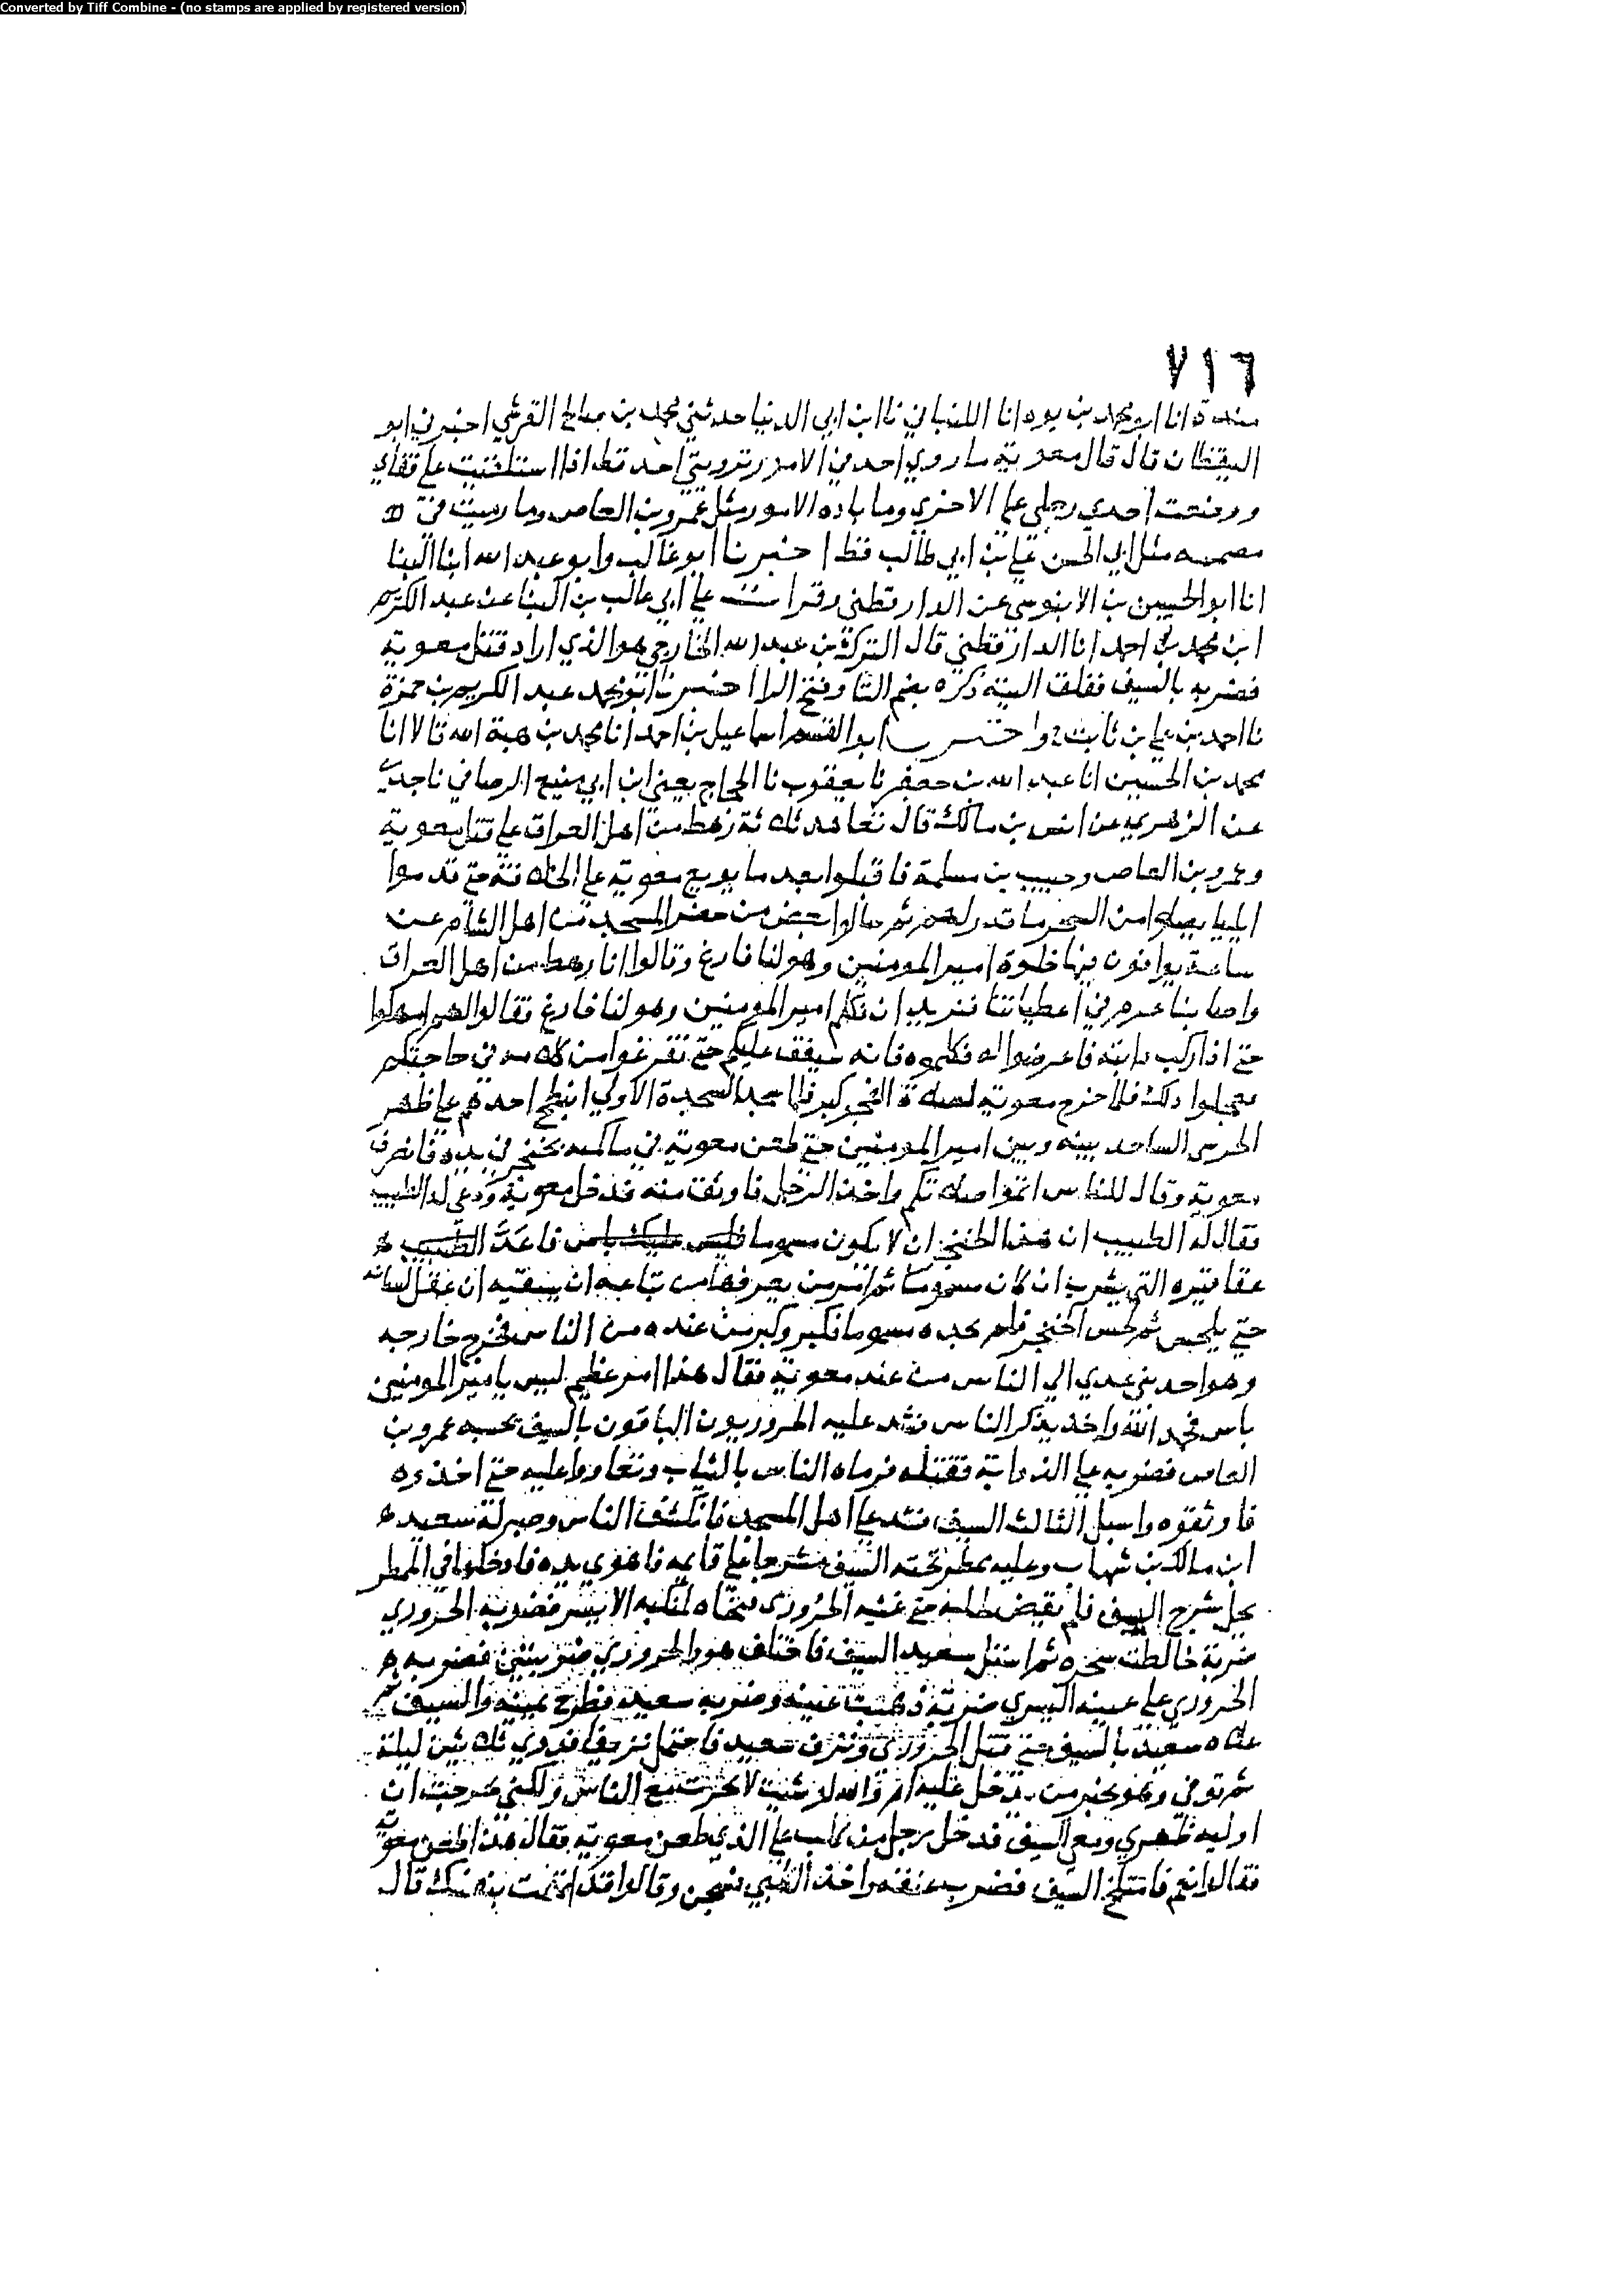 Converted by Tiff Combine - (no stamps are applied by registered version)
٧١٦
مندة انا ابو محمد بن يوه انا اللنباني نا ابن ابي الدنيا حدثني محمد بن صالح القرشي اخبرني ابو
اليقظان قال قال معوية ما روي احد في الامور ترويتي احد قط اذا استلقيت على قفاي
ووضعت احدي رجلي على الاخري وما باده الامور مثل عمرو بن العاص وما رميت في
مصمه مثل ابي الحسن علي بن ابي طالب قط اخبرنا ابو غالب وابو عبد الله ابنا البنا
انا ابو الحسين بن الابنوسي عن الدارقطني وقرات على ابي غالب بن البنا عن عبد الكريم
ابن محمد بن احمد انا الدارقطني قال البرك بن عبد الله الخارجي هو الذي اراد قتل معوية
فضربه بالسيف ففلق اليته ذكره بضم البا وفتح الرا اخبرنا ابو محمد عبد الكريم بن حمزة
نا احمد بن علي بن ثابت واخبرنا ابو القسم اسماعيل بن احمد انا محمد بن هبة الله قالا انا
محمد بن الحسين انا عبد الله بن جعفر نا يعقوب نا الحجاج يعني ابن ابي منيع الرصافي نا جدي
عن الزهري عن انس بن مالك قال تعاهد ثلاثة رهط من اهل العراق على قتل معوية
وعمرو بن العاص وحبيب بن مسلمة فاقبلوا بعد ما بويع معوية على الخلافة حتى قدموا
ايليا يصلوا من السحر ما قدر لهم ثم سالوا بعض من حضر المسجد من اهل الشام عن
ساعة يوافون فيها خلوة امير المومنين وهو لنا فارغ وقالوا انا رهط من اهل العراق
واصابنا غرم في اعطياتنا فنريد ان نكلم امير المومنين وهو لنا فارغ فقالوا لهم امهلوا
حتى اذا ركب دابته فاعرضوا له فكلموه فانه سيقف عليكم حتى تفرغوا من كلامه في حاجتكم
فعجلوا ذلك فلما خرج معوية لصلاة الفجر كبر فلما سجد السجدة الاولي انبطح احدهم على ظهر
الحرسي الساجد بينه وبين امير المومنين حتى طعن معوية في ماكمه بخنجر في يده فانصرف
معوية وقال للناس اتموا صلاتكم واخذ الرجل فاوثق منه فدخل معوية ودعي له الطبيب
فقال له الطبيب ان هذا الخنجر ان لا يكون مسموما فليس عليك باس فاعد الطبيب
عقاقيره التي يشرب ان كان مسموما ثم امر من يعرفها من تباعه ان يسقيه ان عقل لسانه
حتى يلحس ثم لحس الخنجر فلم يجده مسموما فكبر وكبر من عنده من الناس فخرج خارجه
وهو احد بني عدي الي الناس من عند معوية فقال هذا امر عظيم ليس بامير المومنين
باس فحمد الله واخذ يذكر الناس فشد عليه الحروريون الباقون بالسيف يحسبه عمرو بن
العاص فضربه على الذوابة فقتله فرماه الناس بالثياب وتعاووا عليه حتى اخذوه
فاوثقوه واسبل الثالث السيف فشد على اهل المسجد فانكشف الناس وصبر له سعيد
ابن مالك بن شهاب وعليه ممطر تحته السيف مشرجا على قايمه فاهوي بيده فادخلها في الممطر
يحل شرج السيف فلم يقبض لحله حتى غشيه الحروري فنحاه لمنكبه الايسر فضربه الحروري
ضربة خالطت سحره ثم استل سعيد السيف فاختلف هو والحروري ضربتين فضربه
الحروري على عينه اليسري ضربة ذهبت عينه وضربه سعيد فطرح يمينه والسيف ثم
علاه سعيد بالسيف حتى قتل الحروري ونزف سعيد فاحتمل نزيفا فدوي ثلاثين ليلة
ثم توفي وهو يخبر من يدخل عليه ام والله لو شيت لانحزت مع الناس ولكني تحرجت ان
اوليه ظهري ومعي السيف فدخل رجل من كلب على الذي طعن معوية فقال هذا طعن معوية
فقالوا نعم فامتلخ السيف فضرب عنقه واخذ الكلبي فسجن وقالوا قد اتهمت بنفسك قال